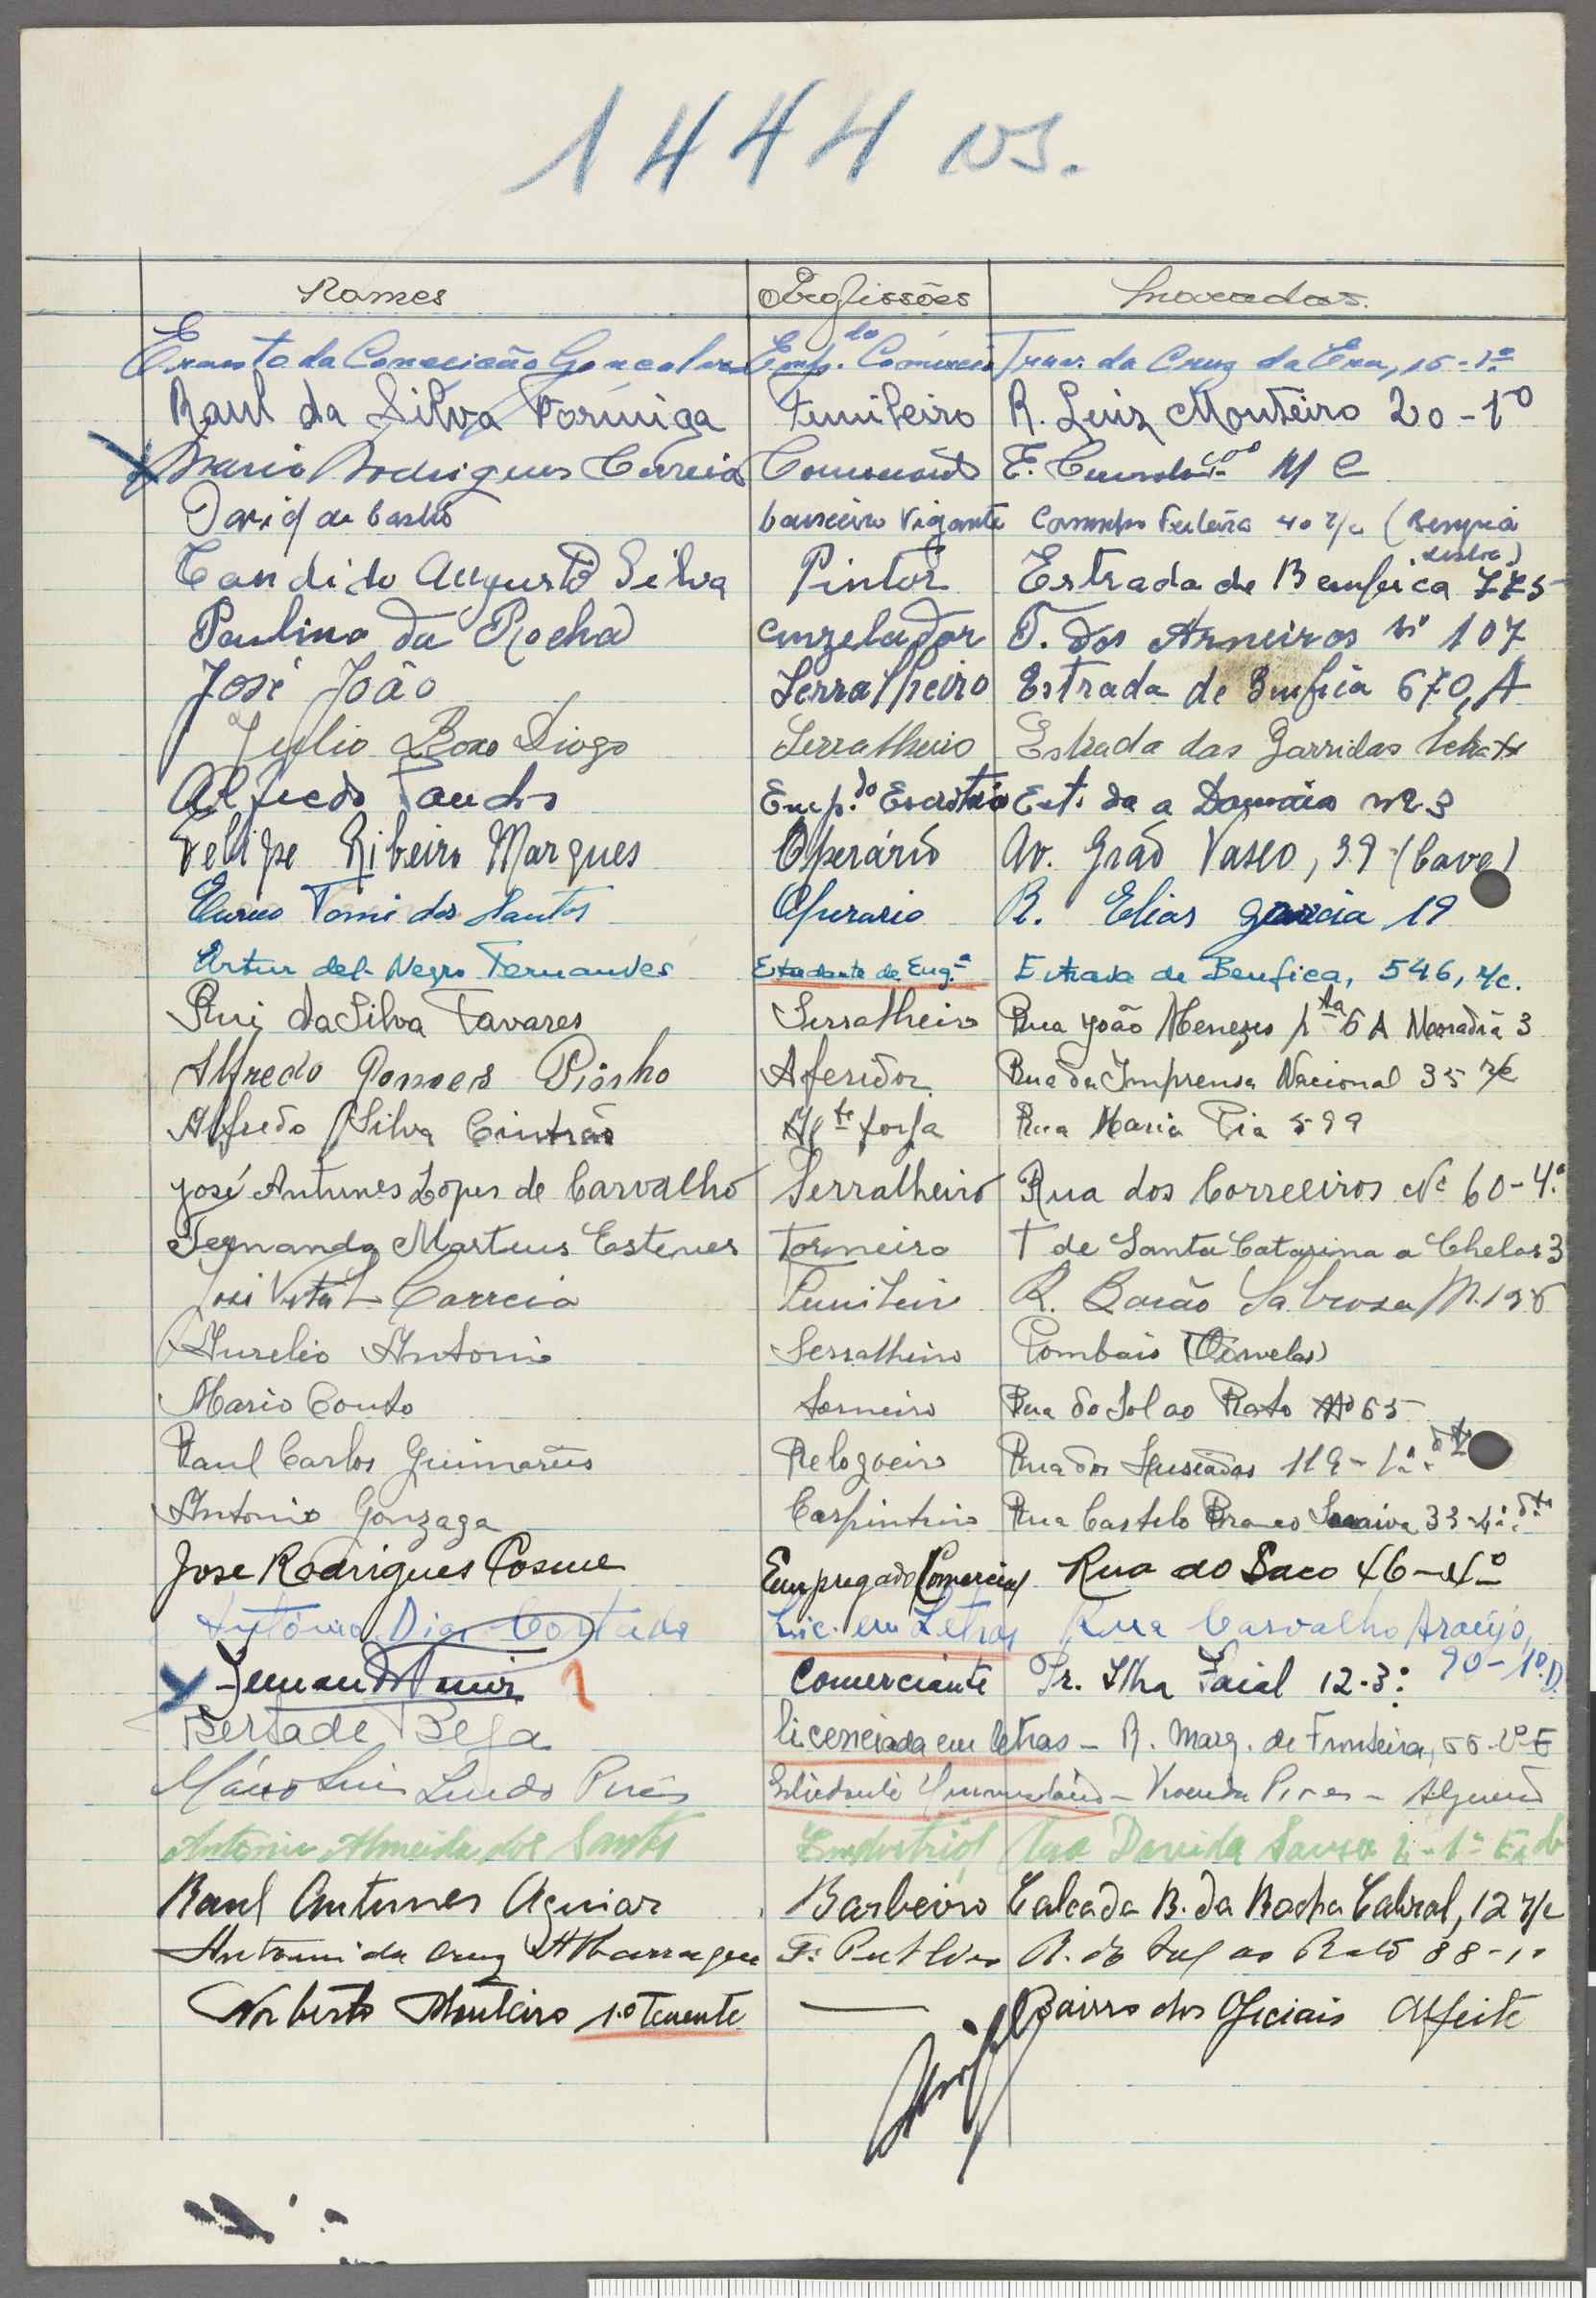 1444 NS.
Nomes Profissões Moradas
Ernesto da Conceição Gonçalves Emp. do Comércio Trav. da Cruz da Era, 16-1º
Raul da Silva Formiga Funileiro R. Luiz Monteiro 20-1º
Mario Rodrigues Correia M C
David de Castro Caminho 40 r/c (Benfica
Lisboa)
Candido Augusto Silva Pintor Estrada de Bemfica 775
Paulino da Rocha cinzelador T. dos Arneiros nº 107
José João Serralheiro Estrada de Bemfica 670, A
Julio Diogo Serralheiro Estrada das Garridas
Alfredo Emp. do Escritório Est. da a Damaia nº 3
Felipe Ribeiro Marques Operário Av. Grão Vasco, 39 (Cave)
Eurico Tomé dos Santos Operario R. Elias Garcia 19
Artur del-Negro Fernandes Estudante de Eng.ª Estrada de Benfica, 546, r/c.
Rui da Silva Tavares Serralheiro Rua João Menezes 6 A 3
Alfredo Gomes Pinho Aferidor Rua da Imprensa Nacional 35 r/c
Alfredo Silva Cintrão Rua Maria Pia 599
José Antunes Lopes de Carvalho Serralheiro Rua dos Correeiros Nº 60-4.º
Fernando Martins Esteves Torneiro T de Santa Catarina a Chelas 3
José Vital Correia Funileiro R. Barão Sabrosa
Aurelio Antonio Serralheiro Pombais (Odivelas)
Mario Couto Torneiro Rua do Sol ao Rato Nº 65
Raul Carlos Guimarães Relogoeiro Rua dos Lusiadas 119-1º. dt
Antonio Gonzaga Carpinteiro Rua Castelo Branco Saraiva 33-4º. dto
Jose Rodrigues Cosme Empregado Comercial Rua do Saco 46-4º
António Dias Lic. em Letras Rua Carvalho Araújo,
90-1º.D.
Comerciante Pr. Ilha Faial 12-3.º
Berta de Beja licenciada em letras - R. Marq. de Fronteira, E
Mário Luis Pires Estudante - Vivenda Pires - Algueirão
Antonio Almeida dos Santos Industrial Rua Sousa
Raul Antunes Aguiar Barbeiro Calçada B. da Rocha Cabral, 12 r/c
Antonio da Cruz F. Publico R. do Sol ao Rato 88-1º
Norberto Monteiro 1.º Tenente — Bairro dos Oficiais Alfeite